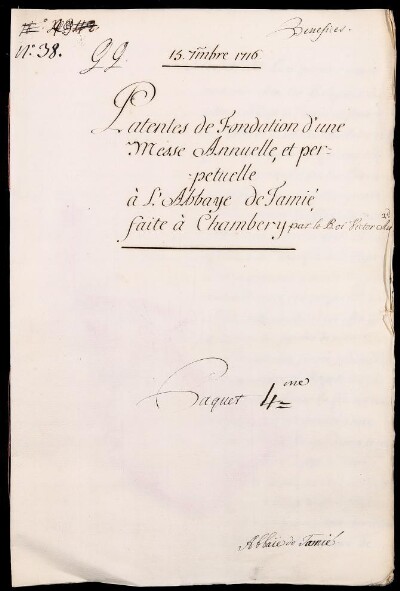 Benefices.
N.° 38. GG. 15. 7mbre 1716
Patentes de Fondation d'une
Messe Annuelle, et per-
petuelle
à L'Abbaye de Tamié,
faite à Chambery par le Roi Victor
Paquet 4me
Abbaie de Tamié